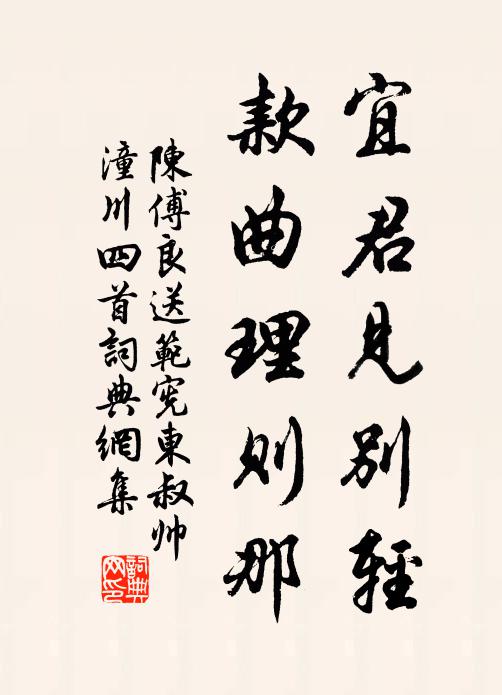 宜君見別輕
款曲理則那
陳傅良送範宪東叔帅
潼川四首詞典網集
詞典
网印